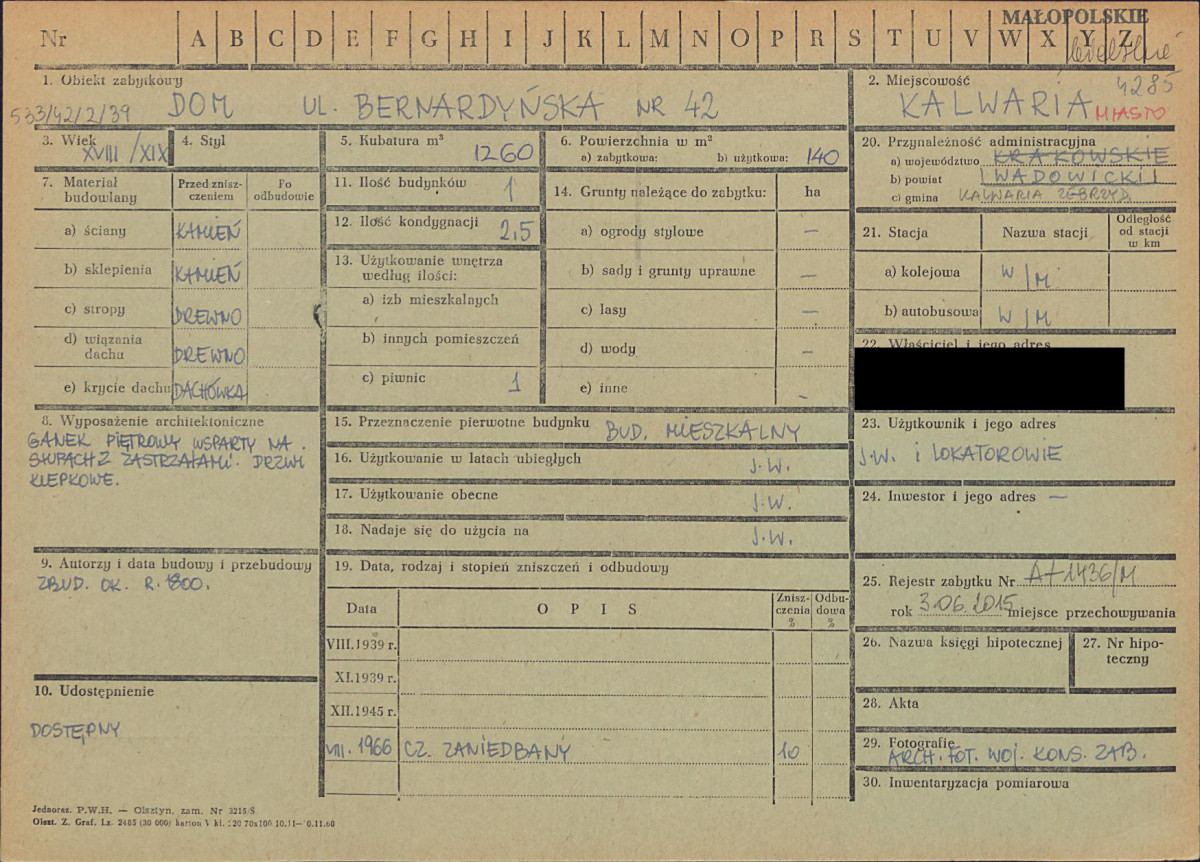 MAŁOPOLSKIE
Nr A B C D E F G H I J K L M N O P R S T U V W X Y Z
1. Obiekt zabytkowy
533/42/2/39 DOM UL. BERNARDYŃSKA NR 42
2. Miejscowość 4285
KALWARIA MIASTO
3. Wiek XVIII/XIX
4. Styl
5. Kubatura m³ 1260
6. Powierzchnia w m²
a) zabytkowa: b) użytkowa: 140
7. Materiał budowlany
Przed zniszczeniem
Po odbudowie
a) ściany KAMIEŃ
b) sklepienia KAMIEŃ
c) stropy DREWNO
d) wiązania dachu DREWNO
e) krycie dachu DACHÓWKA
8. Wyposażenie architektoniczne
GANEK PIĘTROWY WSPARTY NA
SŁUPACH Z ZASTRZAŁAMI. DRZWI
KLEPKOWE.
9. Autorzy i data budowy i przebudowy
ZBUD. OK. R. 1800.
10. Udostępnienie
DOSTĘPNY
11. Ilość budynków 1
12. Ilość kondygnacji 2,5
13. Użytkowanie wnętrza
według ilości:
a) izb mieszkalnych
b) innych pomieszczeń
c) piwnic 1
14. Grunty należące do zabytku: ha
a) ogrody stylowe —
b) sady i grunty uprawne —
c) lasy —
d) wody —
e) inne -
15. Przeznaczenie pierwotne budynku BUD. MIESZKALNY
16. Użytkowanie w latach ubiegłych J.W.
17. Użytkowanie obecne J.W.
18. Nadaje się do użycia na J.W.
19. Data, rodzaj i stopień zniszczeń i odbudowy
Data OPIS Zniszczenia % Odbudowa %
VIII.1939 r.
XI.1939 r.
XII.1945 r.
VIII. 1966 CZ. ZANIEDBANY 10
20. Przynależność administracyjna
a) województwo KRAKOWSKIE
b) powiat WADOWICKI
c) gmina KALWARIA ZEBRZYD.
21. Stacja Nazwa stacji Odległość od stacji w km
a) kolejowa W/M
b) autobusowa W/M
22. Właściciel i jego adres
23. Użytkownik i jego adres
J.W. i LOKATOROWIE
24. Inwestor i jego adres —
25. Rejestr zabytku Nr A-1436/M
rok 3.06.2015 miejsce przechowywania
26. Nazwa księgi hipotecznej
27. Nr hipoteczny
28. Akta
29. Fotografie
ARCH. FOT. WOJ. KONS. ZAB.
30. Inwentaryzacja pomiarowa
Jednoraz. P.W.H. — Olsztyn, zam. Nr 3215/S